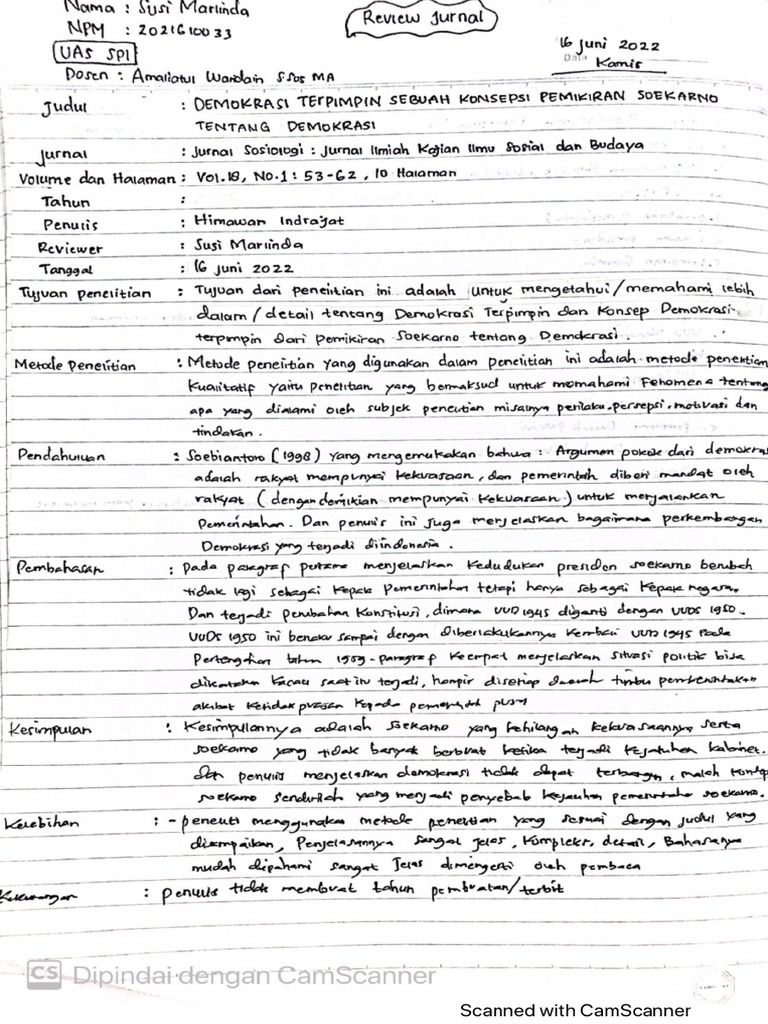 Nama : Susi Marlinda
Review Jurnal
NPM : 2021610033
16 Juni 2022
UAS SPI
Date Kamis
Dosen : Amaliatul Waridain S.Sos MA
Judul : DEMOKRASI TERPIMPIN SEBUAH KONSEPSI PEMIKIRAN SOEKARNO
TENTANG DEMOKRASI
Jurnal : Jurnal Sosiologi : Jurnal Ilmiah Kajian Ilmu Sosial dan Budaya
Volume dan Halaman : Vol.18, No.1 : 53-62, 10 Halaman
Tahun :
Penulis : Himawan Indrajat
Reviewer : Susi Marlinda
Tanggal : 16 Juni 2022
Tujuan penelitian : Tujuan dari penelitian ini adalah untuk mengetahui/memahami lebih
dalam/detail tentang Demokrasi Terpimpin dan Konsep Demokrasi
terpimpin Dari Pemikiran Soekarno tentang Demokrasi.
Metode Penelitian : Metode penelitian yang digunakan dalam penelitian ini adalah metode penelitian
Kualitatif yaitu penelitian yang bermaksud untuk memahami Fenomena tentang
apa yang dialami oleh subjek penelitian misalnya perilaku, persepsi, motivasi dan
tindakan.
Pendahuluan : Soebiantoro (1998) yang mengemukakan bahwa : Argumen pokok dari demokrasi
adalah rakyat mempunyai kekuasaan, dan pemerintah diberi mandat oleh
rakyat (dengan demikian mempunyai kekuasaan) untuk menjalankan
Pemerintahan. Dan penulis ini juga menjelaskan bagaimana perkembangan
Demokrasi yang terjadi diindonesia.
Pembahasan : pada paragraf pertama menjelaskan Kedudukan presiden soekarno berubah
tidak lagi sebagai kepala Pemerintahan tetapi hanya sebagai Kepala negara.
Dan terjadi perubahan Konstitusi, dimana UUD 1945 diganti dengan UUDS 1950.
UUDS 1950 ini berlaku sampai dengan diberlakukannya kembali UUD 1945 Pada
Pertengahan tahun 1959 - paragraf Keempat menjelaskan situasi politik bisa
dikatakan kacau saat itu terjadi, hampir disetiap daerah timbul pemberontakan
akibat ketidak puasan kepada pemerintah pusat
Kesimpulan : Kesimpulannya adalah soekarno yang kehilangan kekuasaannya serta
soekarno yang tidak banyak berbuat ketika terjadi kejatuhan kabinet.
dan penulis menjelaskan demokrasi tidak dapat terbangun, malah
soekarno sendirilah yang menjadi penyebab kejatuhan pemerintahan soekarno.
Kelebihan : - peneliti menggunakan metode penelitian yang sesuai dengan judul yang
disampaikan, Penjelasannya sangat jelas, Kompleks, detail, Bahasanya
mudah dipahami sangat Jelas dimengerti oleh pembaca
Kekurangan : penulis tidak membuat tahun pembuatan/terbit
CS Dipindai dengan CamScanner
Scanned with CamScanner